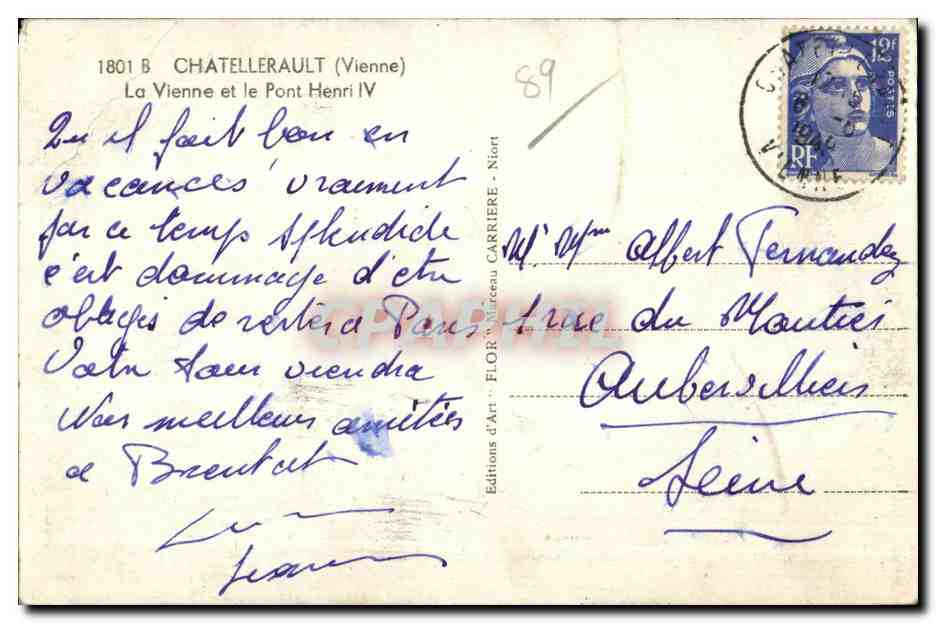 1801 B CHATELLERAULT (Vienne)
La Vienne et le Pont Henri IV
89
Qu il fait bon en
vacances vraiment
par ce temps splendide
c'est dommage d'etre
obliges de rester a Paris
Votre tour viendra
Nos meilleurs amitiés
a
Editions d'Art " FLOR " Marceau CARRIERE - Niort
12F
POSTES
RF
VIENNE
Mr Mme Albert Fernandez
rue du Moutier
Aubervilliers
Seine
CPAPHIL